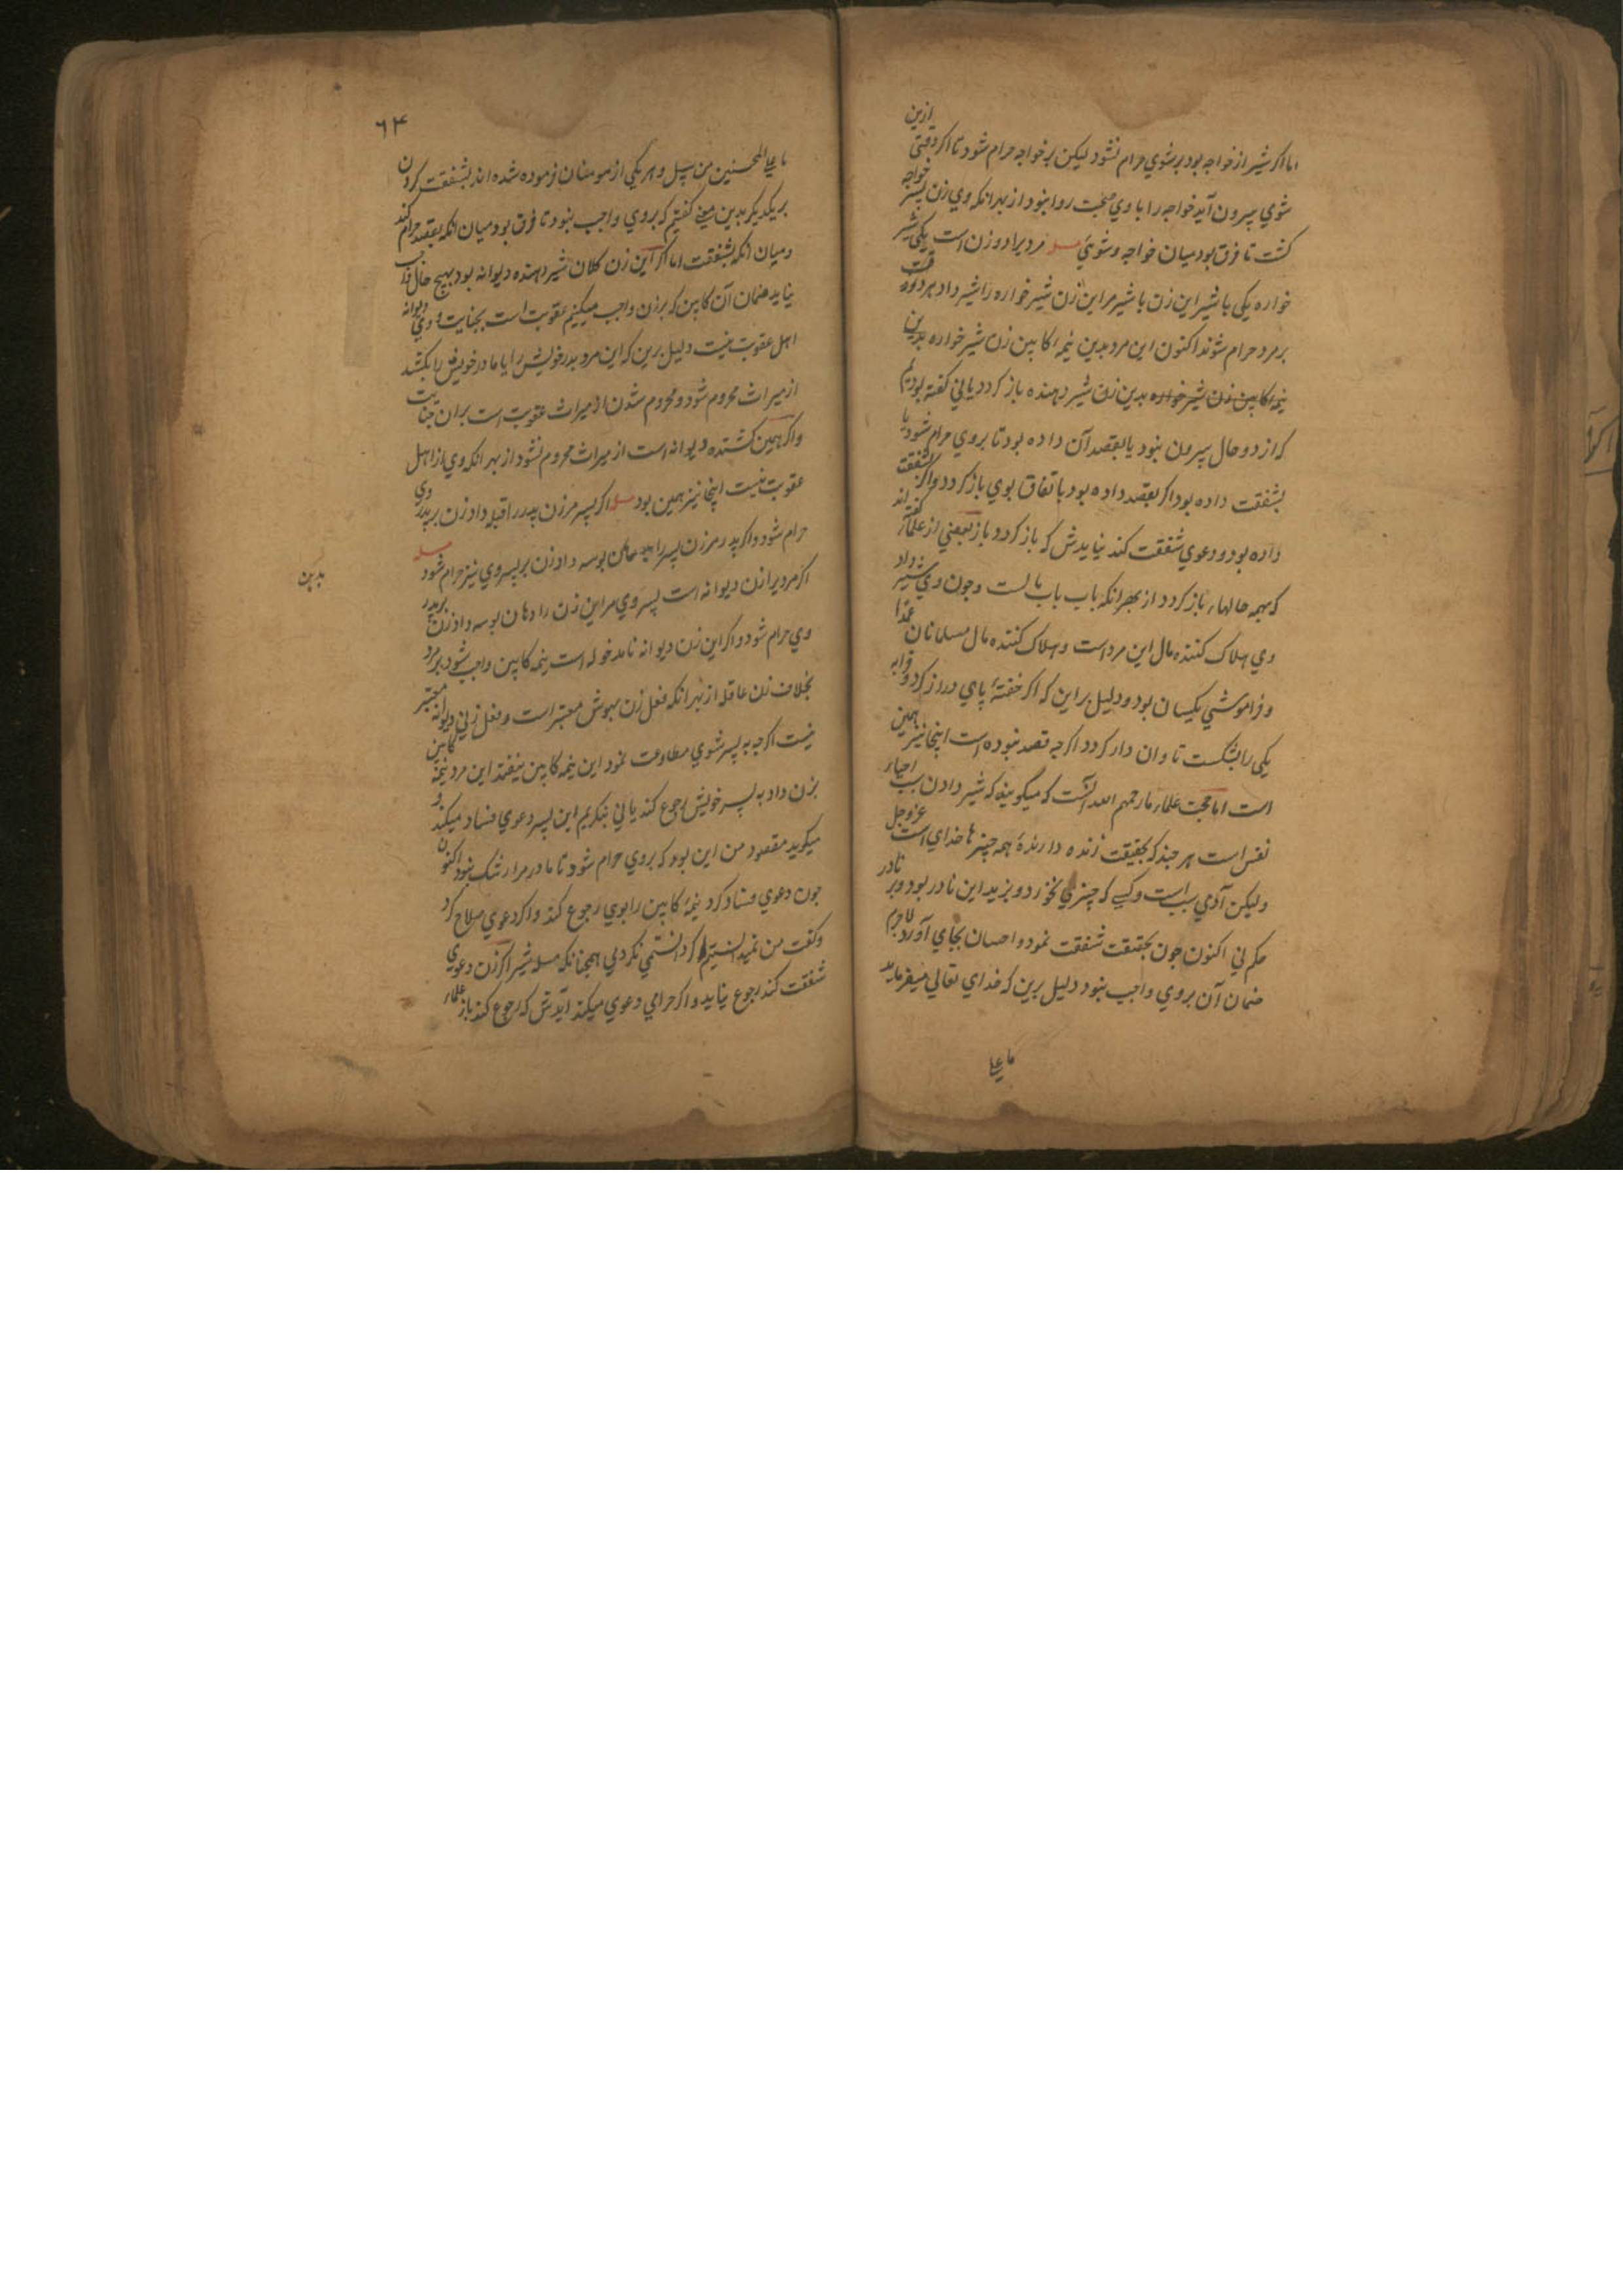 اما اگر شیر از خواجه بود بر شوی حرام نشود لیکن بر خواجه حرام شود تا اگر وقتی ازین
شوی بیرون آید خواجه را با وی صحبت روا نبود از بهر انکه وی زن پسر خواجه
کشت تا فرق بود میان خواجه و شوی مسله مرد یرا دو زن است یکی شیر
خواره یکی با شیر این زن با شیر مر این زن شیر خواره را شیر داد هر دو
بر مرد حرام شوند اکنون این مرد بدین نیمه کابین زن شیر خواره بدین
نیمه کابین زن شیر خواره بدین زن شیر دهنده باز کردد یا نی کفته بودیم
که از دو حال بیرون نبود یا بقصد آن داده بود تا بروی حرام شود یا
بشفقت داده بود اگر بقصد داده بود باتفاق بوی باز کردد و اگر بشفقت
داده بود و دعوی شفقت کند نیایدش که باز کردد باز بعضی از علما کفته اند
که بهمه حالها باز کردد از بهر انکه باب باب مالست و چون وی شیر داد
وی هلاک کننده مال این مرد است و هلاک کننده مال مسلمانان عمدا
و فراموشی یکسان بود و دلیل بر این که اگر خفته پای دراز کرد و قرابه
یکی را بشکست تاوان دار کردد اگرچه قصد نبوده است اینجا نیز همین
است اما حجت علماء ما رحمهم الله آنست که میکویند که شیر دادن سبب احیاء
نفس است هر چند که بحقیقت زنده دارنده همه چیزها خدای است عز و جل
ولیکن آدمی سبب است و کسی که چیزی نخورد و بزید این نادر بود و بر نادر
حکم نی اکنون چون بحقیقت شفقت نمود و احسان بجای آورد لاجرم
ضمان آن بروی واجب نبود دلیل برین که خدای تعالی میفرماید
ما علی
٦۴
ما علی المحسنین من سبیل و هر یکی از مومنان فرموده شده اند بشفقت کردن
بر یکدیکر بدین معنی کفتیم که بروی واجب نبود تا فرق بود میان انکه بقصد حرام کند
و میان انکه بشفقت اما اگر این زن کلان شیر دهنده دیوانه بود بهیچ حال واجب
نیاید ضمان آن کابین که بر زن واجب میکنیم عقوبت است بجنایت و وی دیوانه
اهل عقوبت نیست دلیل برین که این مرد پدر خویش را یا مادر خویش را بکشد
از میراث محروم شود و محروم شدن از میراث عقوبت است بران جنایت
و اگر همین کشنده دیوانه است از میراث محروم نشود از بهر انکه وی از اهل
عقوبت نیست اینجا نیز همین بود مسله اگر پسر مر زن پدر را قبله داد زن بر پدر وی
حرام شود و اگر پدر مر زن پسر را بوسه داد زن بر پسر وی نیز حرام شود مسله
اگر مرد یرا زن دیوانه است پسر وی مر این زن را دهان بوسه داد زن بر پدر
وی حرام شود و اگر این زن دیوانه نامدخوله است نیمه کابین واجب شود بر مرد
بخلاف زن عاقله از بهر انکه فعل زن بهوش معتبر است و فعل زنی دیوانه معتبر
نیست اگرچه به پسر شوی مطاوعت نمود این نیمه کابین نیفتد این مرد نیمه کابین
بزن داد به پسر خویش رجوع کند یا نی بنکریم این پسر دعوی فساد میکند و
میکوید مقصود من این بود که بروی حرام شود تا مادر مرا رشک نبود اکنون
چون دعوی فساد کرد نیمه کابین را بوی رجوع کند و اگر دعوی صلاح کرد
و کفت من نمیدانستم اگر دانستمی نکردمی همچنانکه مسله شیر اگر زن دعوی
شفقت کند رجوع نیاید و اگر حرامی دعوی میکند آیدش که رجوع کند باز علماء
بدین